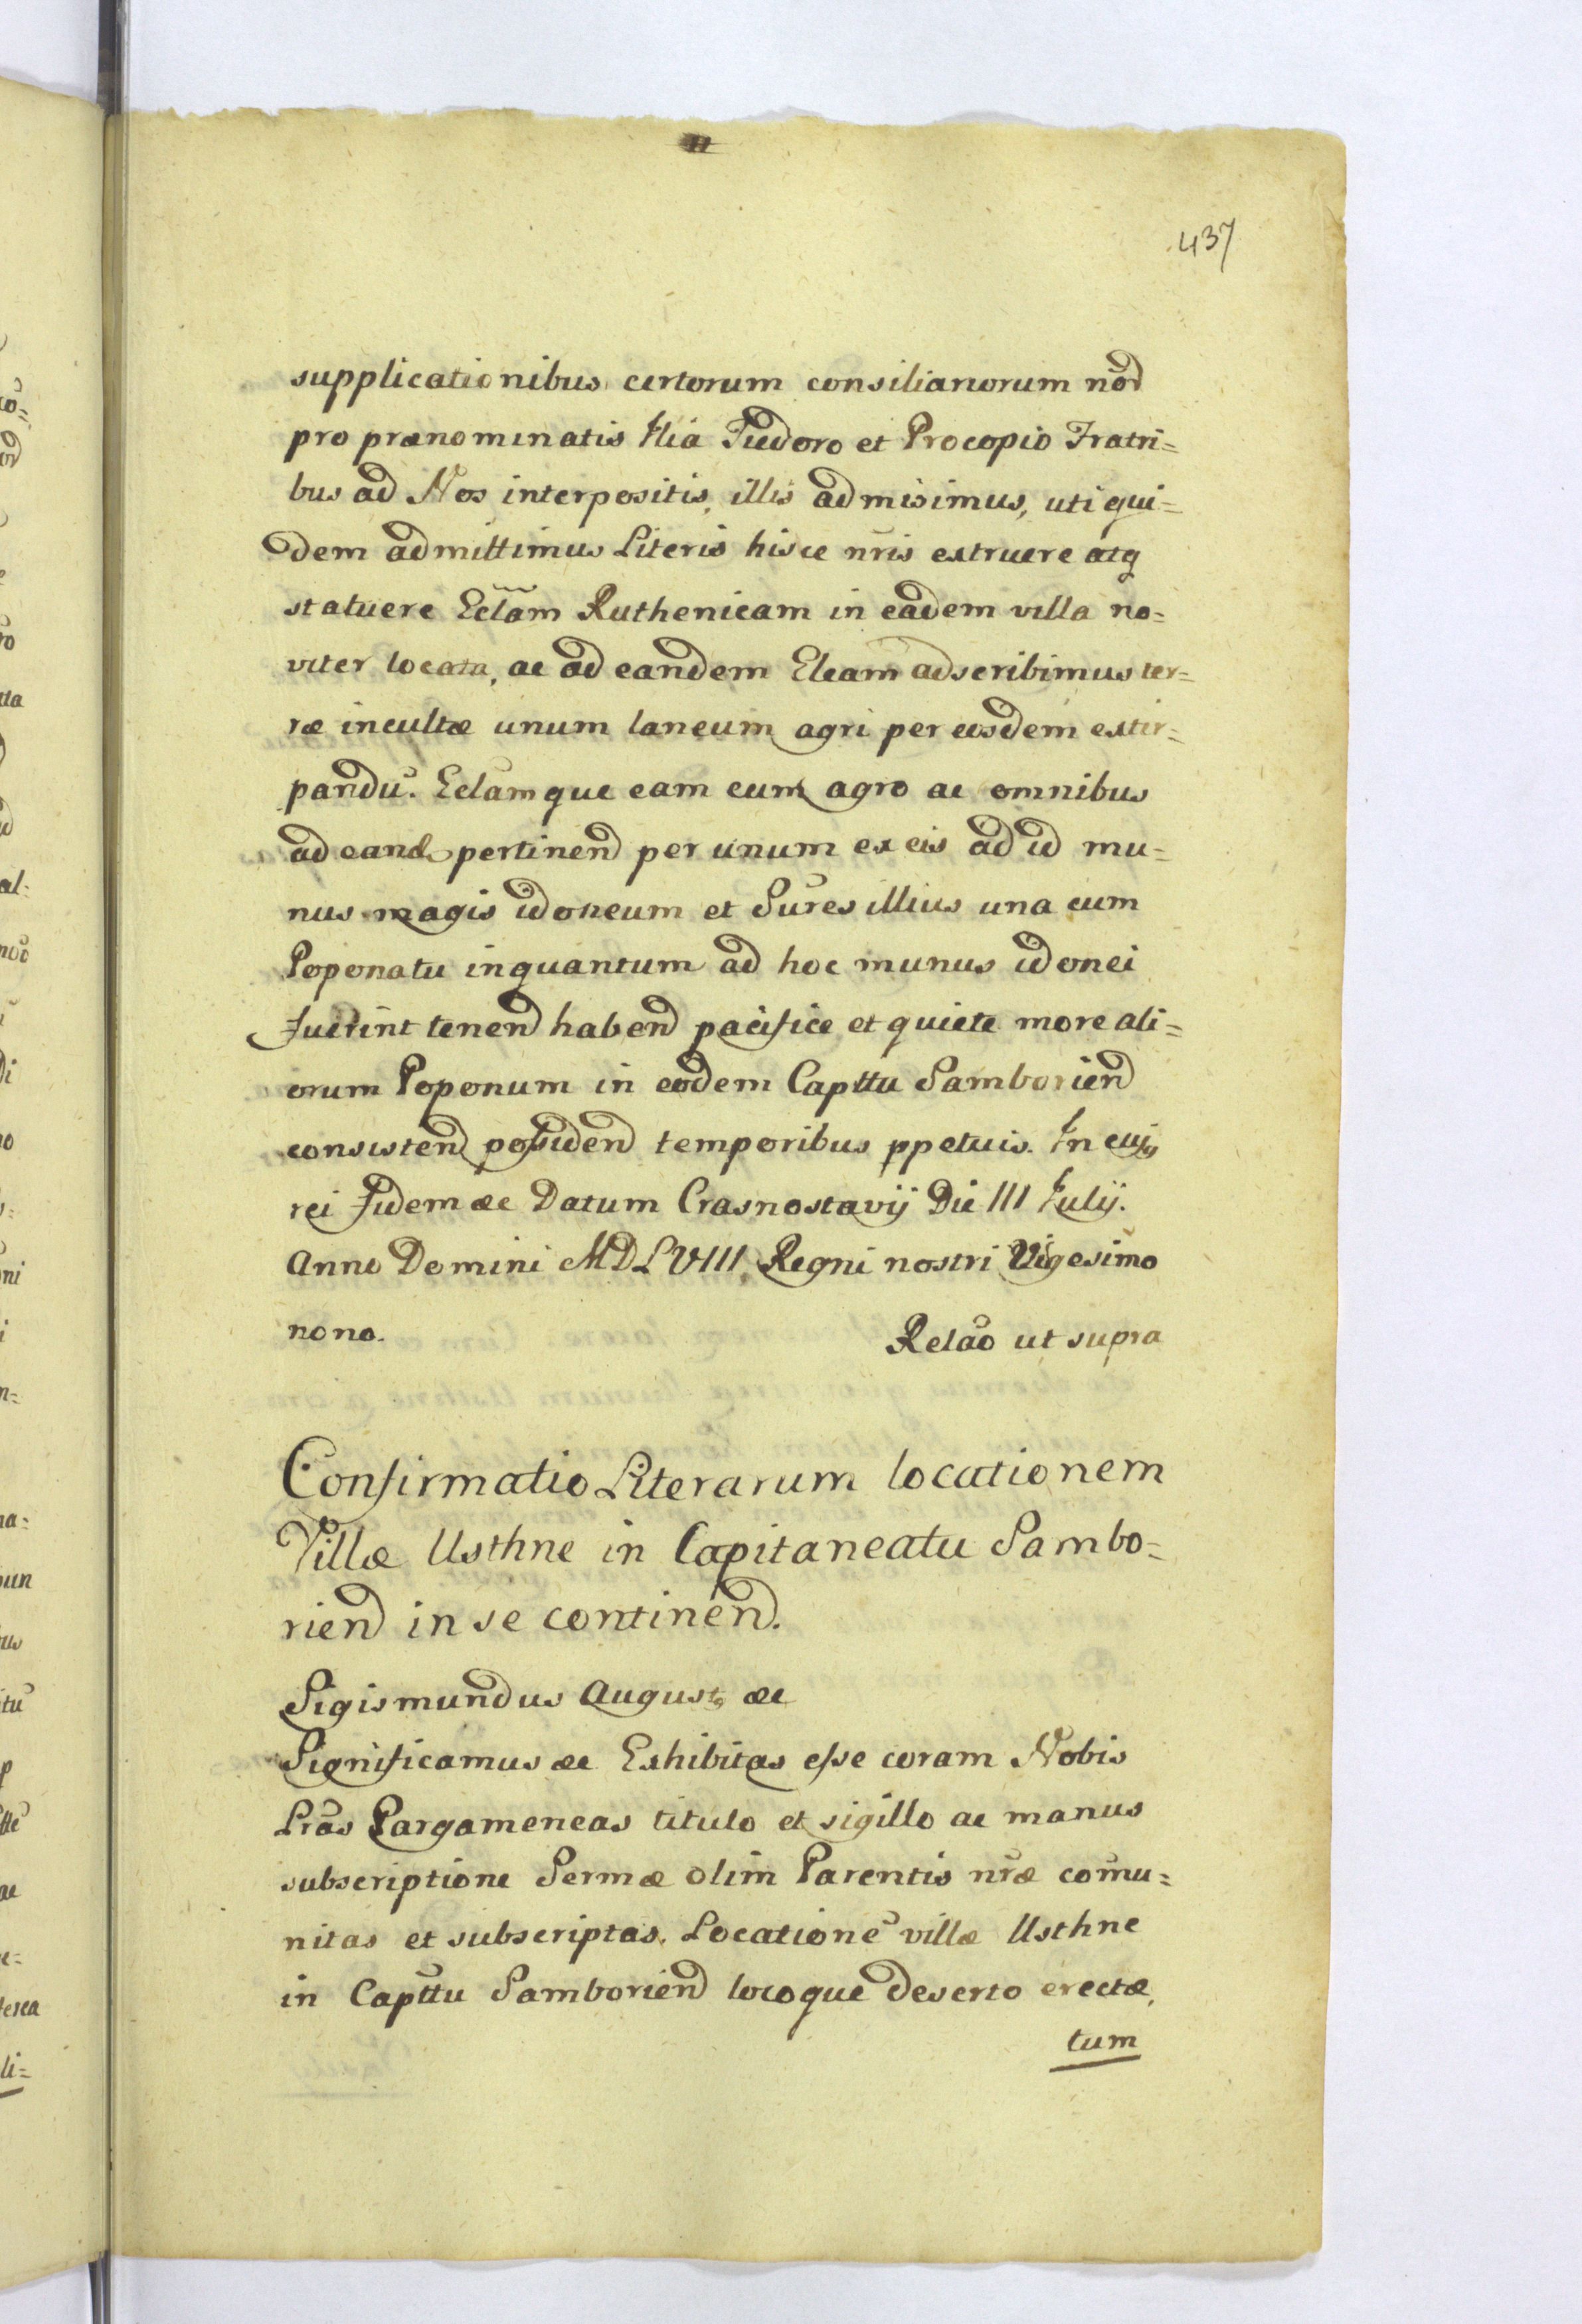 437
supplicationibus certorum consiliariorum nõd
pro prænominatis Ilia Fiedoro et Procopio Fratri=
bus ad Nos interpositis, illis admisimus, uti qui=
dem admittimus Literis hisce nr̃is extruere atq
statuere Ecl̃am Ruthenicam in eadem villa no=
viter locata, ac ad eandem Ecleam adscribimus ter=
ræ incultæ unum laneum agri per eosdem extir=
pandũ. Eclãmque eam cum agro ac omnibus
ad eand pertinend per unum ex eis ad id mu=
nus magis idoneum et Sũres illius una cum
Poponatu inquantum ad hoc munus idonei
fuerint tenend habend pacifice et quiete more ali=
orum Poponum in eodem Capttu Samboriend
consistend possidend temporibus ppetuis. In cujq
rei fidem ac Datum Crasnostavij Die III Julij.
Anno Domini MDLVIII. Regni nostri Vigesimo
nono.
Relão ut supra
Confirmatio Literarum locationem
Villæ Usthne in Capitaneatu Sambo=
riend in se continend.
Sigismundus Augustq ac
Significamus ac Exhibitas esse coram Nobis
Lr̃as Pargameneas titulo et sigillo ac manus
subscriptione Sermæ olim Parentis nr̃æ com̃u=
nitas et subscriptas. Locationẽ villæ Usthne
in Capttu Samboriend locoque deserto erectæ,
tum